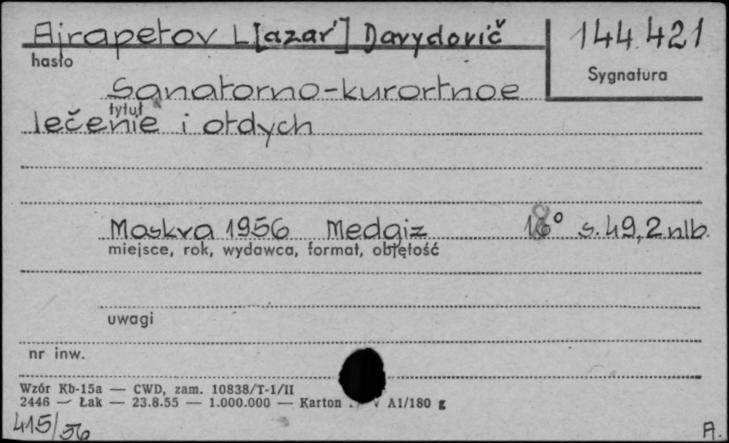 Ajrapetov L[azar'] Davydovič
144.421
hasło
Sygnatura
Sanatorno-kurortnoe
tytuł
lečenie i otdych
Moskva 1956 Medgiz s. 49, 2 nlb.
miejsce, rok, wydawca, format, objętość
uwagi
nr inw.
Wzór Kb-15a — CWD, zam. 10838/T-1/II
2446 — Łak — 23.8.55 — 1.000.000 — Karton A1/180 g
415/56
A.